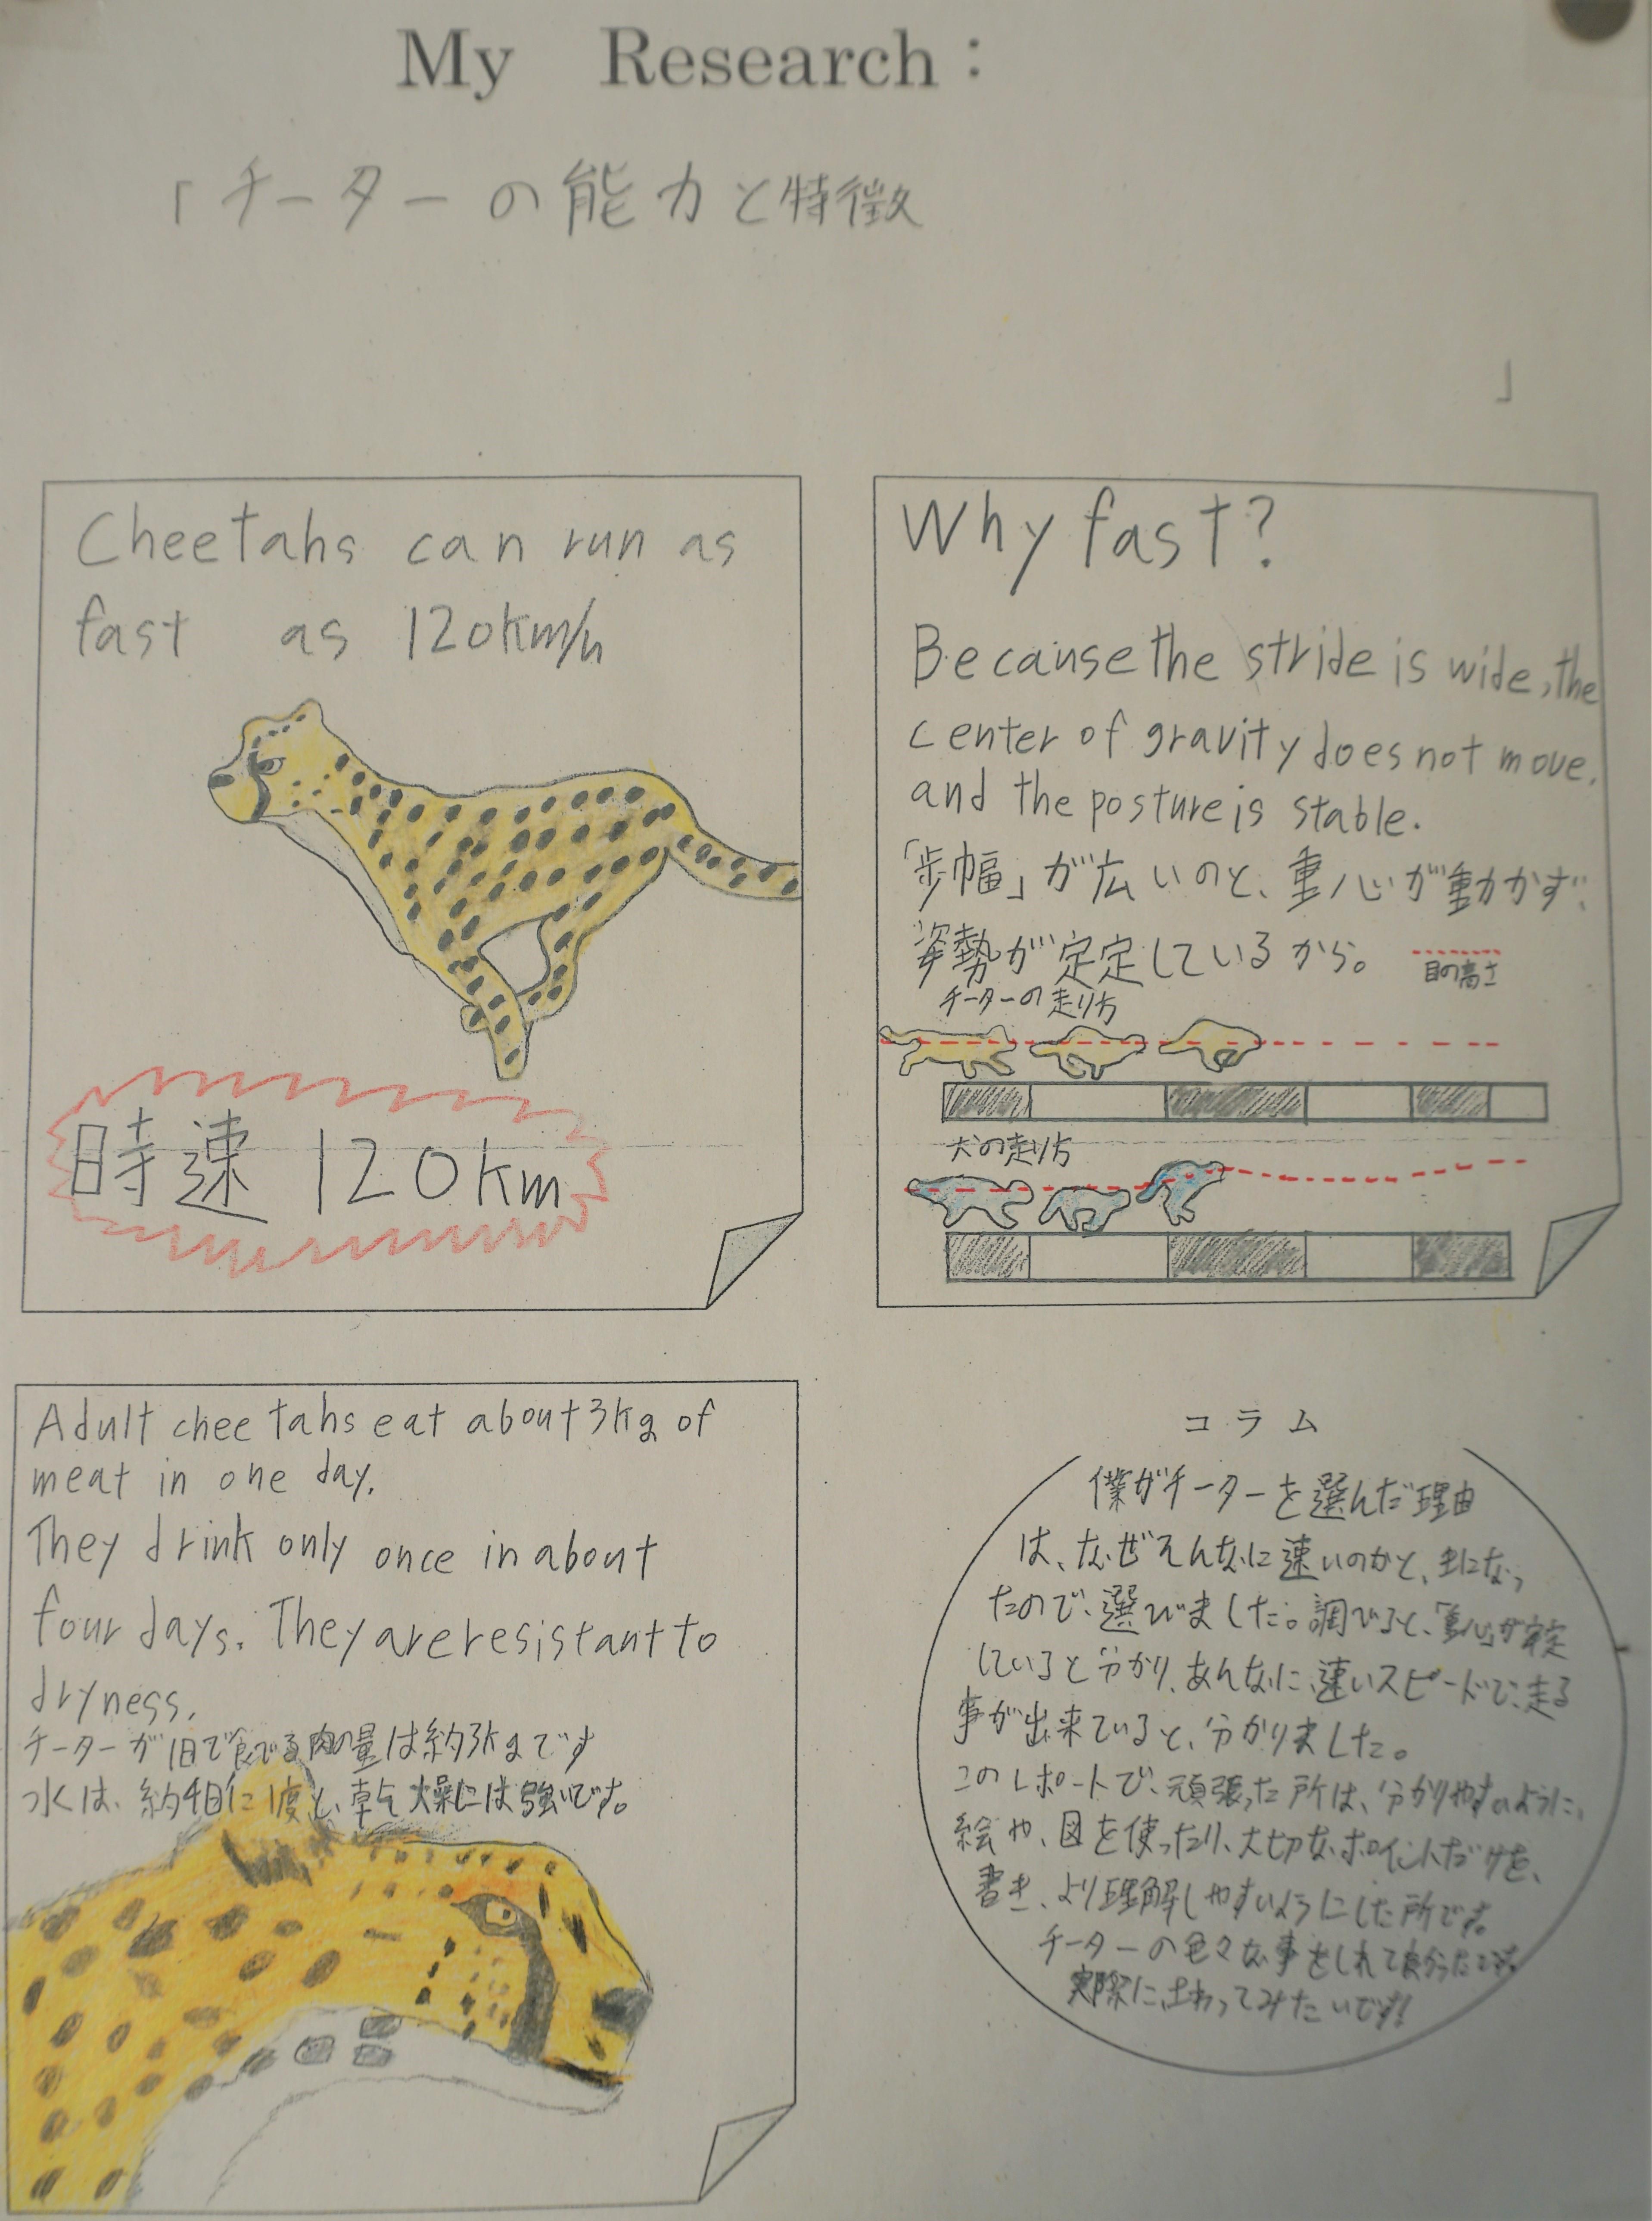 My Research:
「チーターの能力と特徴
」
Cheetahs can run as
fast as 120km/h
時速 120km
Why fast?
Because the stride is wide, the
center of gravity does not move,
and the posture is stable.
「歩幅」が広いのと、重心が動かず、
姿勢が定定しているから。
目の高さ
チーターの走り方
犬の走り方
Adult cheetahs eat about 3kg of
meat in one day.
They drink only once in about
four days. They are resistant to
dryness.
チーターが1日で食べる肉の量は約3kgです
水は、約4日に1度と、乾燥には強いです。
コラム
僕がチーターを選んだ理由
は、なぜそんなに速いのかと、気になっ
たので、選びました。調べると、「重心」が安定
していると分かり、あんなに、速いスピードで、走る
事が出来ていると、分かりました。
このレポートで、頑張った所は、分かりやすいように、
絵や、図を使ったり、大切なポイントだけを、
書き、より理解しやすいようにした所です。
チーターの色々な事をしれて良かったです。
実際に、さわってみたいです!